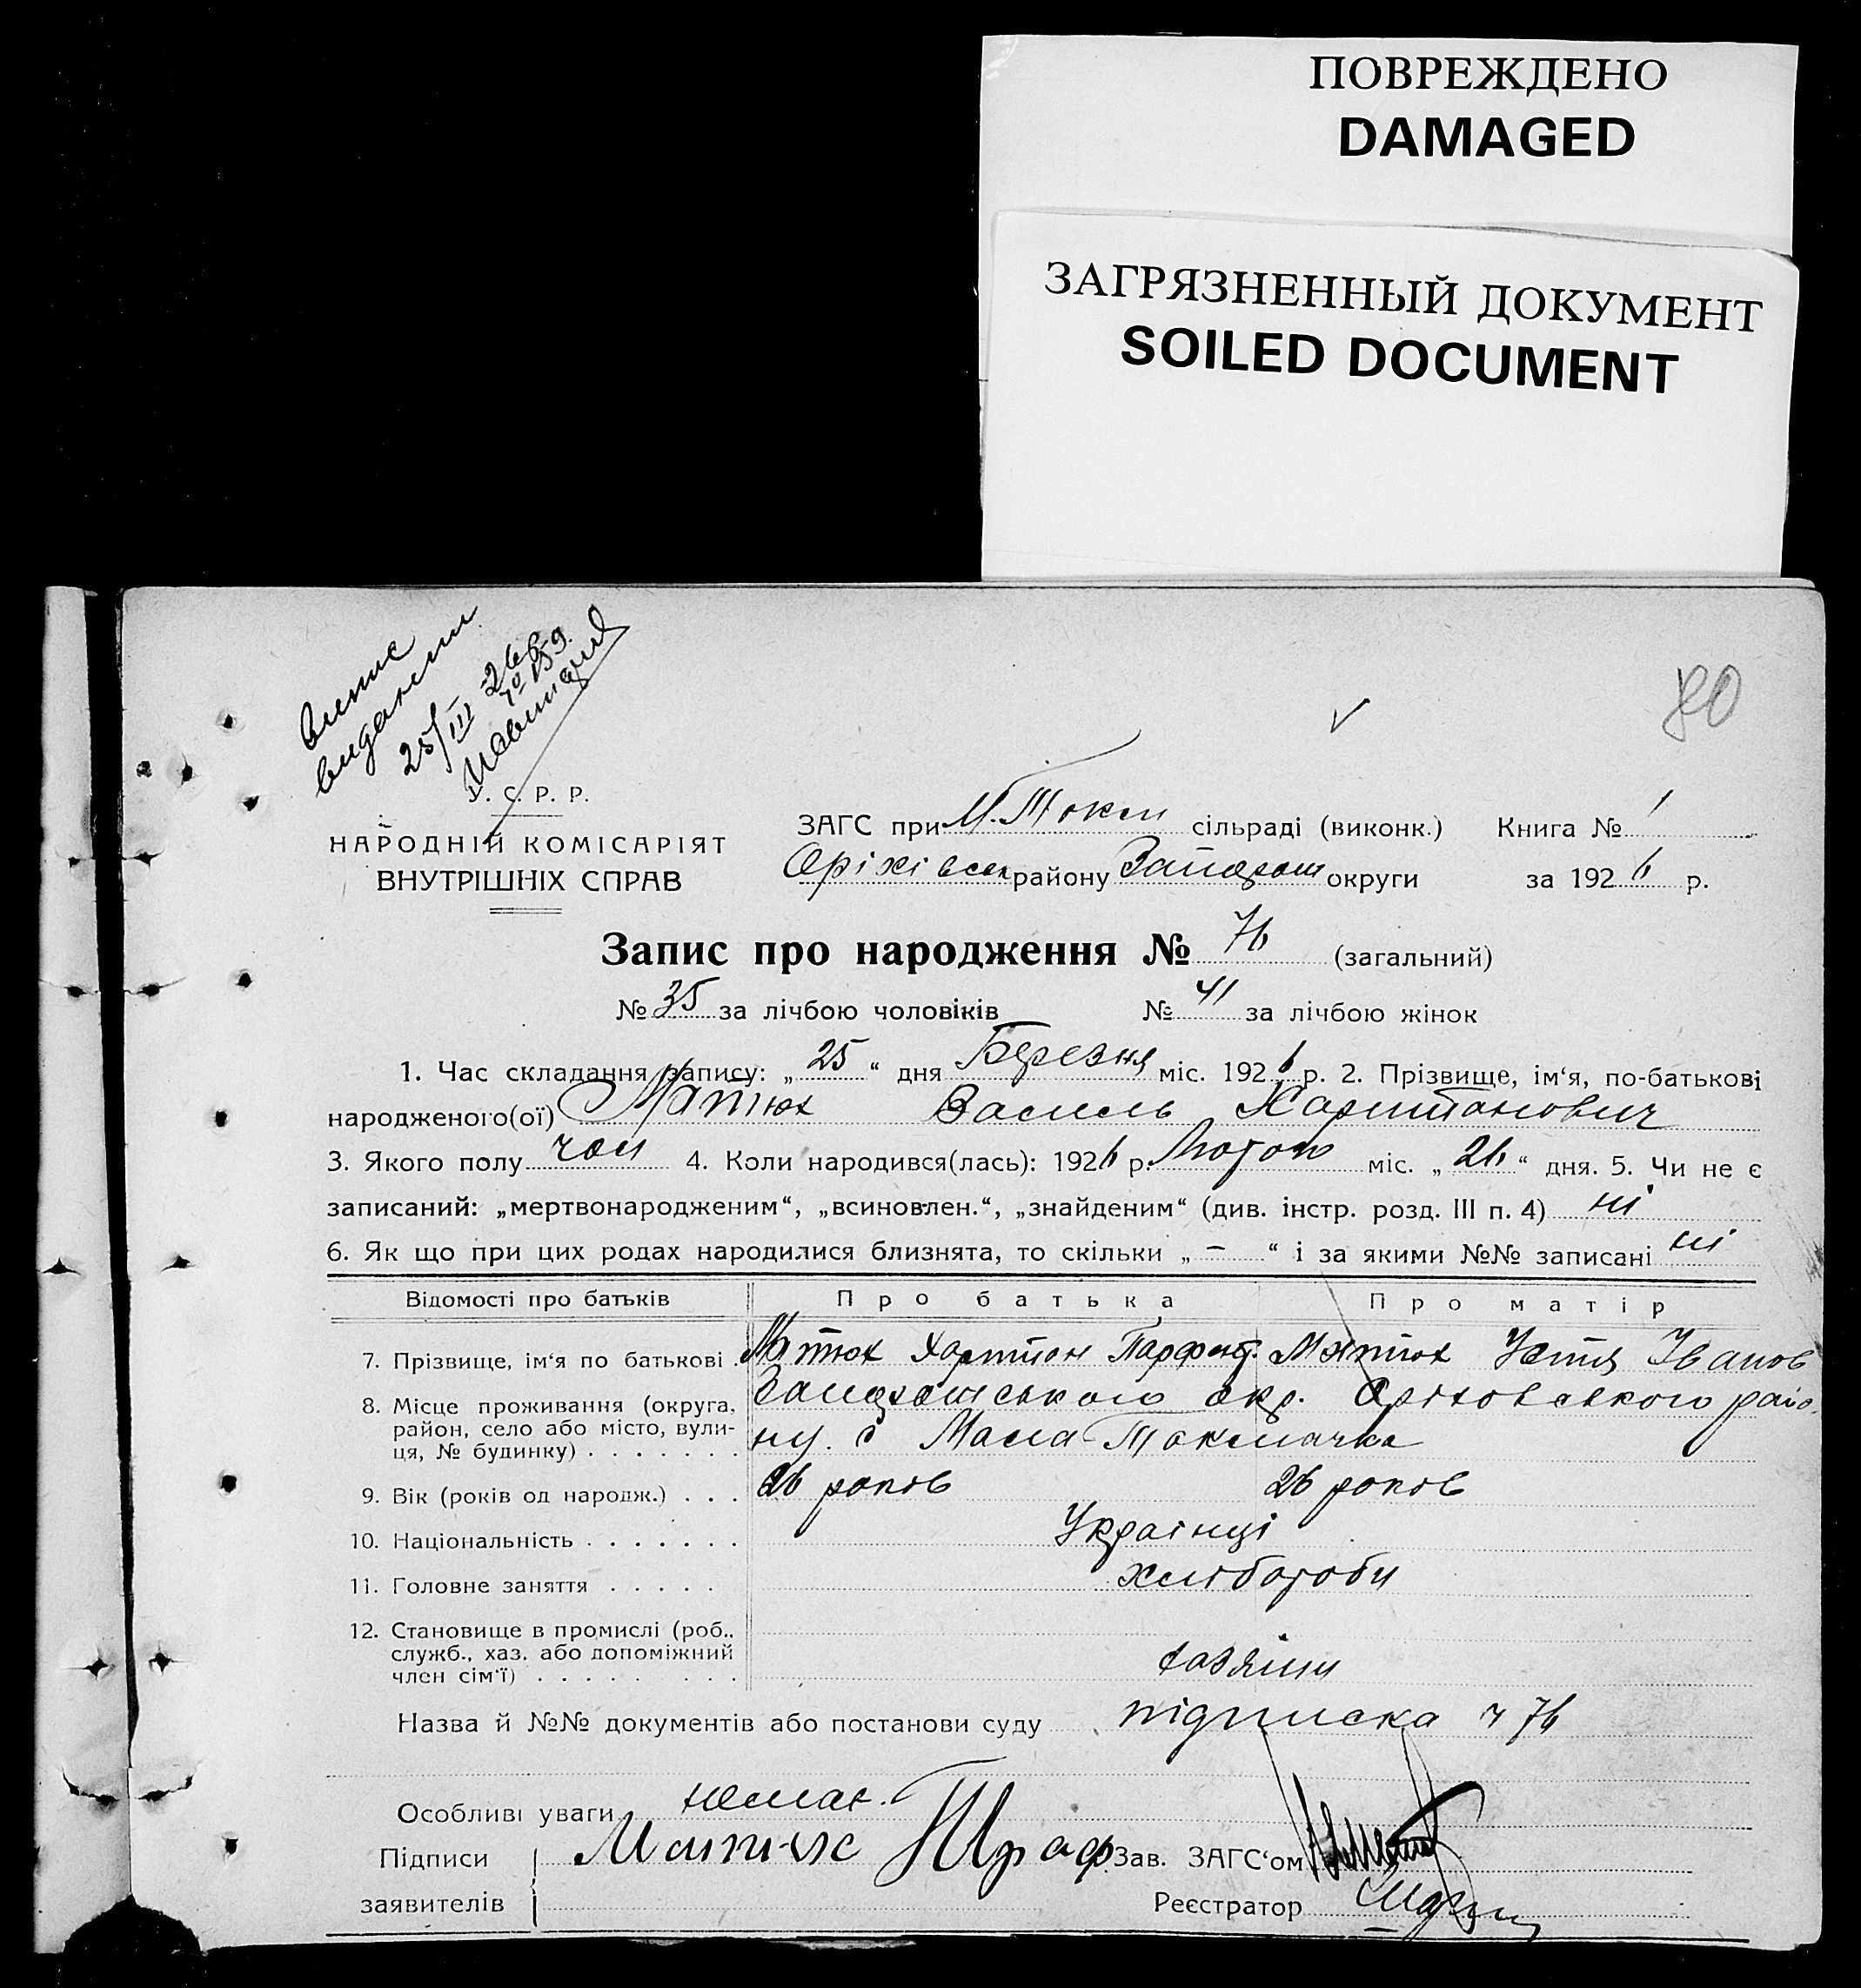 ПОВРЕЖДЕНО
DAMAGED
ЗАГРЯЗНЕННЫЙ ДОКУМЕНТ
SOILED DOCUMENT
80
25/III
У. С. Р. Р.
НАРОДНІЙ КОМІСАРІЯТ
ВНУТРІШНІХ СПРАВ
ЗАГС при М. Токм сільраді (виконк.) Книга № 1
Оріхівськ району Запорош округи за 1926 р.
Запис про народження № 76 (загальний)
№ 35 за лічбою чоловіків № 41 за лічбою жінок
1. Час складання запису: „25“ дня Березня міс. 1926 р. 2. Прізвище, ім‘я, по-батькові
народженого(ої) Матюх Василь Харитонович
3. Якого полу чол 4. Коли народився(лась): 1926 р. Лютого міс. „26“ дня. 5. Чи не є
записаний: „мертвонародженим“, „всиновлен.“, „знайденим“ (див. інстр. розд. III п. 4) ні
6. Як що при цих родах народилися близнята, то скільки „ – “ і за якими №№ записані ні
Відомості про батьків Про батька Про матір
7. Прізвище, ім‘я по батькові . Матюх Харитон Парфент. Матюх Устя Іванов
8. Місце проживання (округа, район, село або місто, вулиця, № будинку) . . . . . . . Запорошського окр. Оріховського райо
ну. с Мала Токмачка
9. Вік (років од народж.) . . . 26 років 26 років
10. Національність . . . . . . . Українці
11. Головне заняття . . . . . хлібороби
12. Становище в промислі (роб.,
служб., хаз. або допоміжний
член сім‘ї) . . . . . . . . . хазяіни
Назва й №№ документів або постанови суду підписка ч 76
Особливі уваги немає.
Підписи
заявителів
Зав. ЗАГС‘ом
Реєстратор